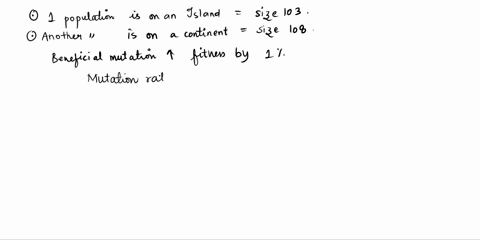 ⊙ 1 population is on an Island = size 103.
⊙ Another " is on a continent = size 108.
Beneficial mutation ↑ fitness by 1%.
Mutation rat